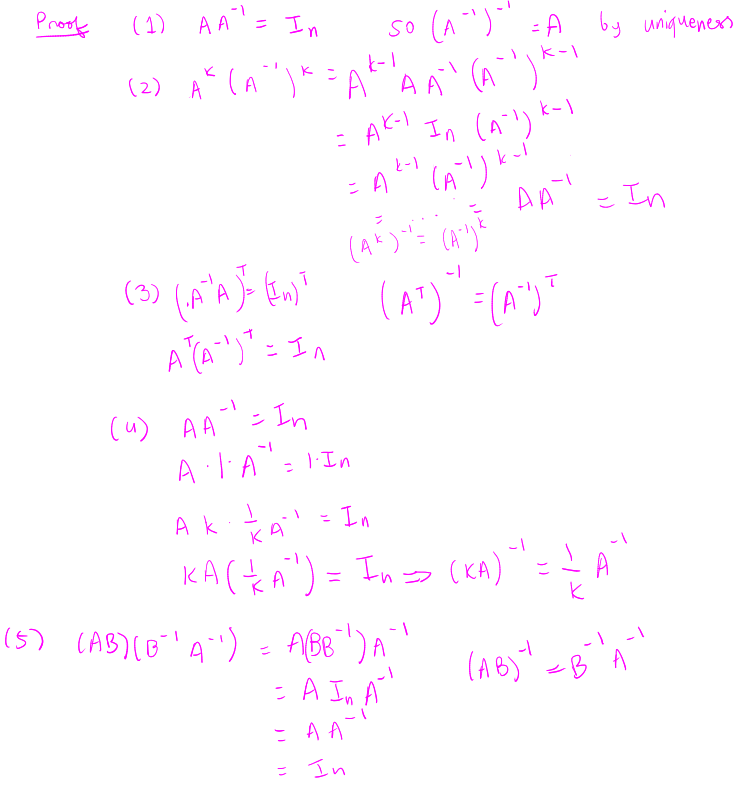 Proof (1) A A⁻¹ = Iₙ so (A⁻¹)⁻¹ = A by uniqueness
(2) Aᵏ (A⁻¹)ᵏ = Aᵏ⁻¹ A A⁻¹ (A⁻¹)ᵏ⁻¹
= Aᵏ⁻¹ Iₙ (A⁻¹)ᵏ⁻¹
= Aᵏ⁻¹ (A⁻¹)ᵏ⁻¹
= ... = A A⁻¹ = Iₙ
(Aᵏ)⁻¹ = (A⁻¹)ᵏ
(3) (A⁻¹A)ᵀ = (Iₙ)ᵀ (Aᵀ)⁻¹ = (A⁻¹)ᵀ
Aᵀ(A⁻¹)ᵀ = Iₙ
(4) A A⁻¹ = Iₙ
A · 1 · A⁻¹ = 1 · Iₙ
A k · 1/k A⁻¹ = Iₙ
kA(1/k A⁻¹) = Iₙ ⇒ (kA)⁻¹ = 1/k A⁻¹
(5) (AB)(B⁻¹ A⁻¹) = A(BB⁻¹)A⁻¹
= A Iₙ A⁻¹ (AB)⁻¹ = B⁻¹ A⁻¹
= A A⁻¹
= Iₙ